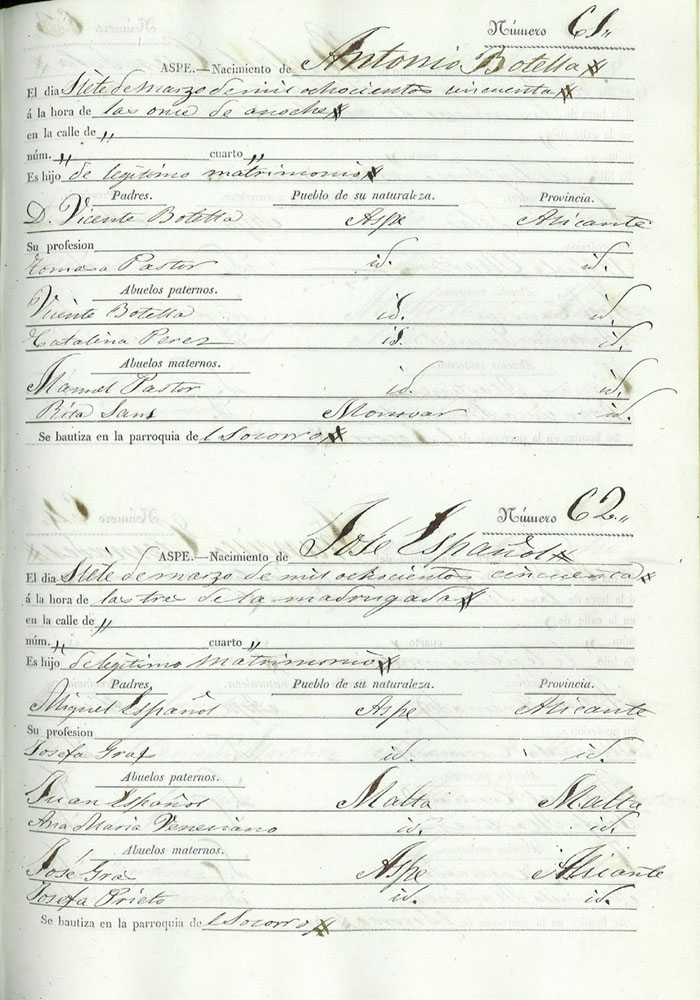 Número 61,,
ASPE.—Nacimiento de Antonio Botella
El dia Siete de marzo de mil ochocientos cincuenta
á la hora de las once de anoche
en la calle de ,,
núm. ,, cuarto ,,
Es hijo de legitimo matrimonio
Padres. Pueblo de su naturaleza. Provincia.
D. Vicente Botella Aspe Alicante
Su profesion
Tomasa Pastor id. id.
Abuelos paternos.
Vicente Botella id. id.
Catalina Perez id. id.
Abuelos maternos.
Manuel Pastor id. id.
Rita Sans Monovar id.
Se bautiza en la parroquia del Socorro
Número 62,,
ASPE.—Nacimiento de Jose Español
El dia Siete de marzo de mil ochocientos cincuenta
á la hora de las tres de la madrugada
en la calle de ,,
núm. ,, cuarto ,,
Es hijo de legitimo matrimonio
Padres. Pueblo de su naturaleza. Provincia.
Miguel Español Aspe Alicante
Su profesion
Josefa Gras id. id.
Abuelos paternos.
Juan Español Malta Malta
Ana Maria Veneciano id. id.
Abuelos maternos.
José Gras Aspe Alicante
Josefa Prieto id. id.
Se bautiza en la parroquia del Socorro